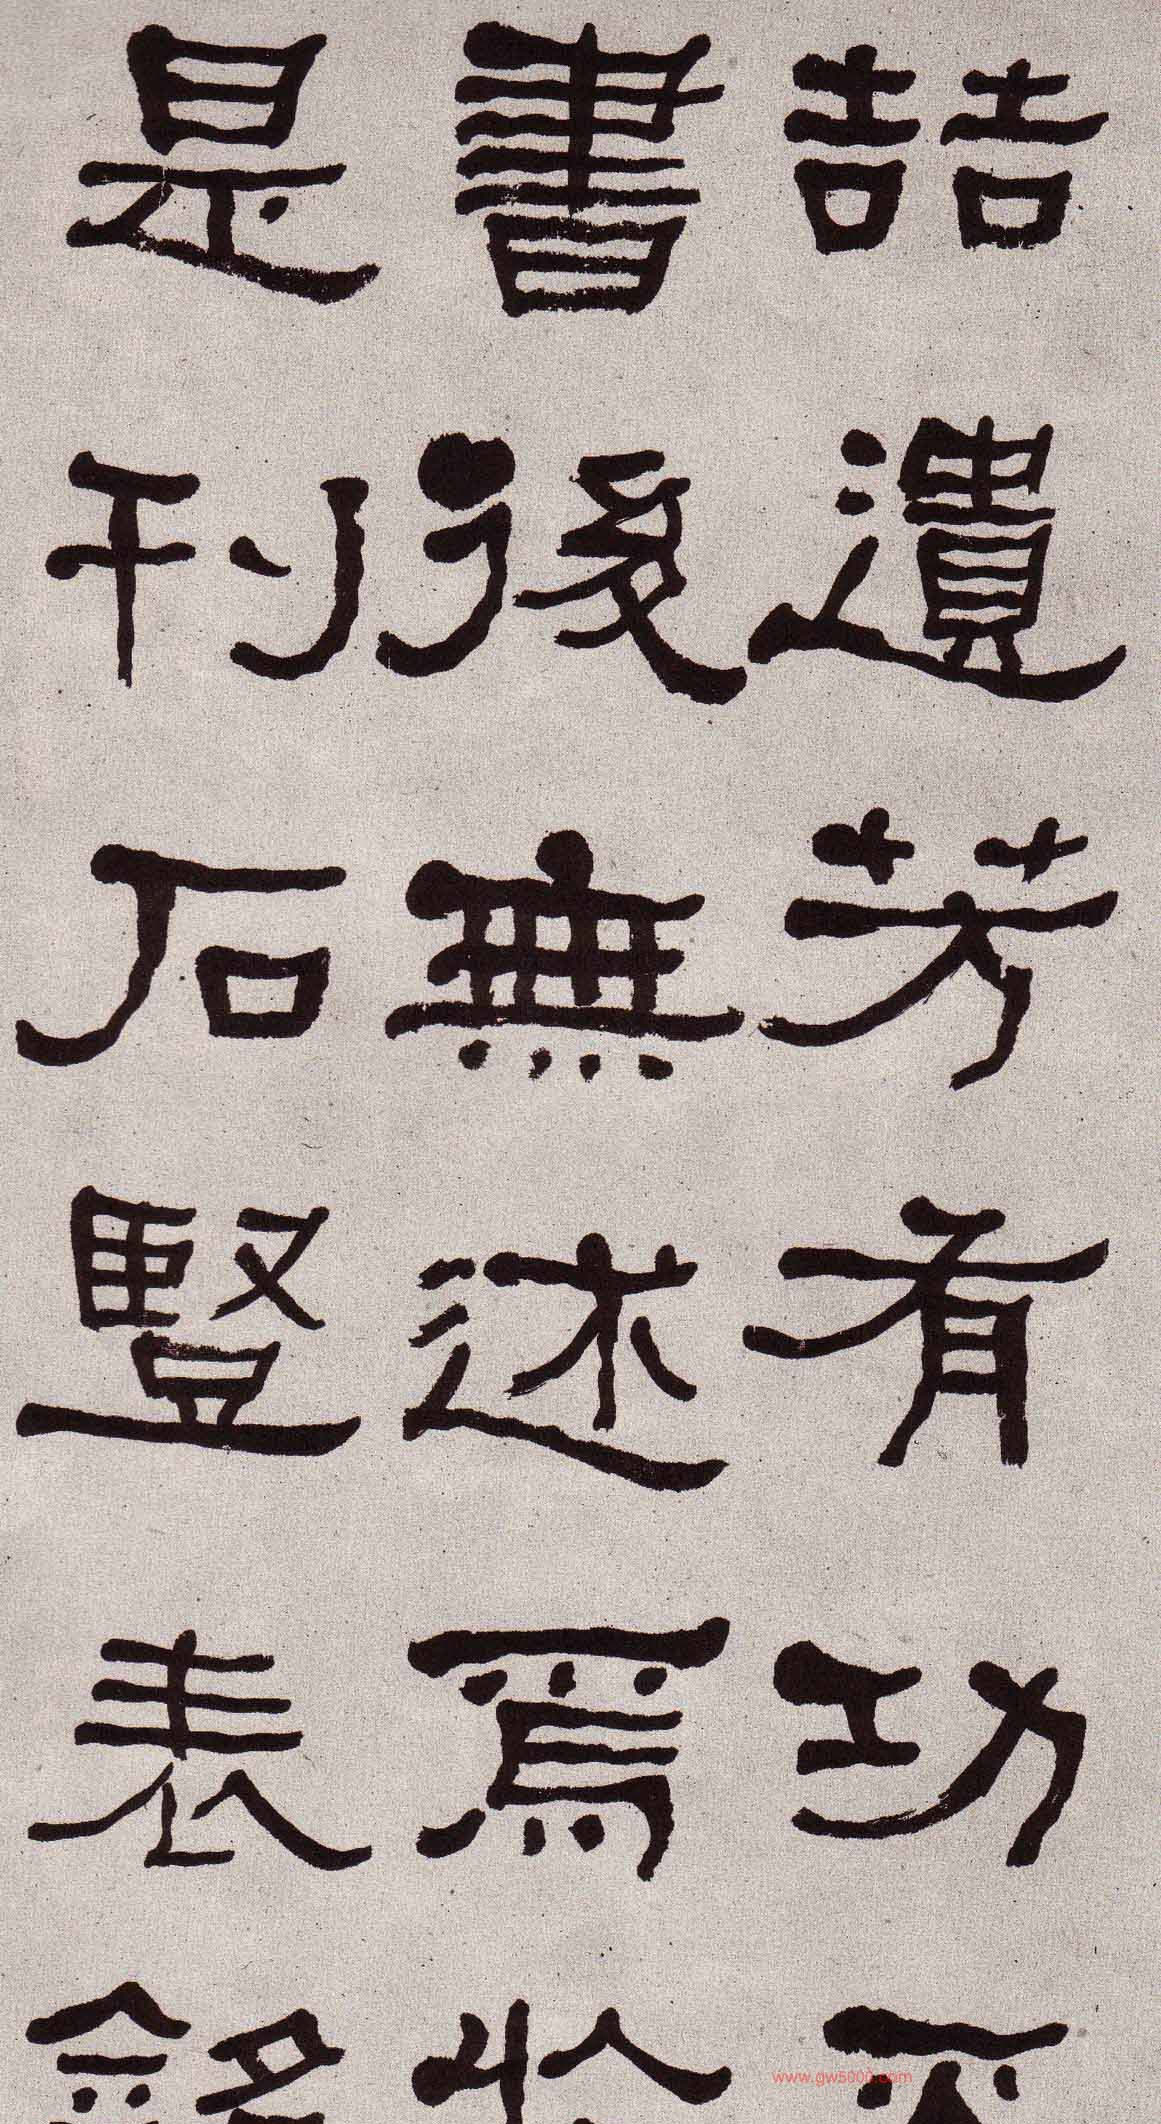 喆遺芳有功不
書後無述焉於
是刊石豎表銘
www.gw5000.com